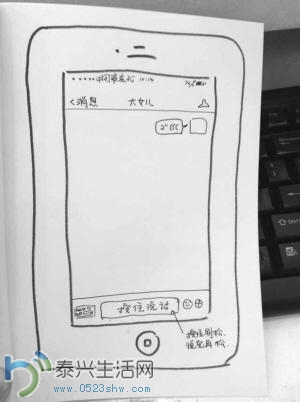 中国移动 10:14
<消息 大女儿
2"
按住说话
按住别松,
说完再松.
泰兴生活网
www.0523shw.com